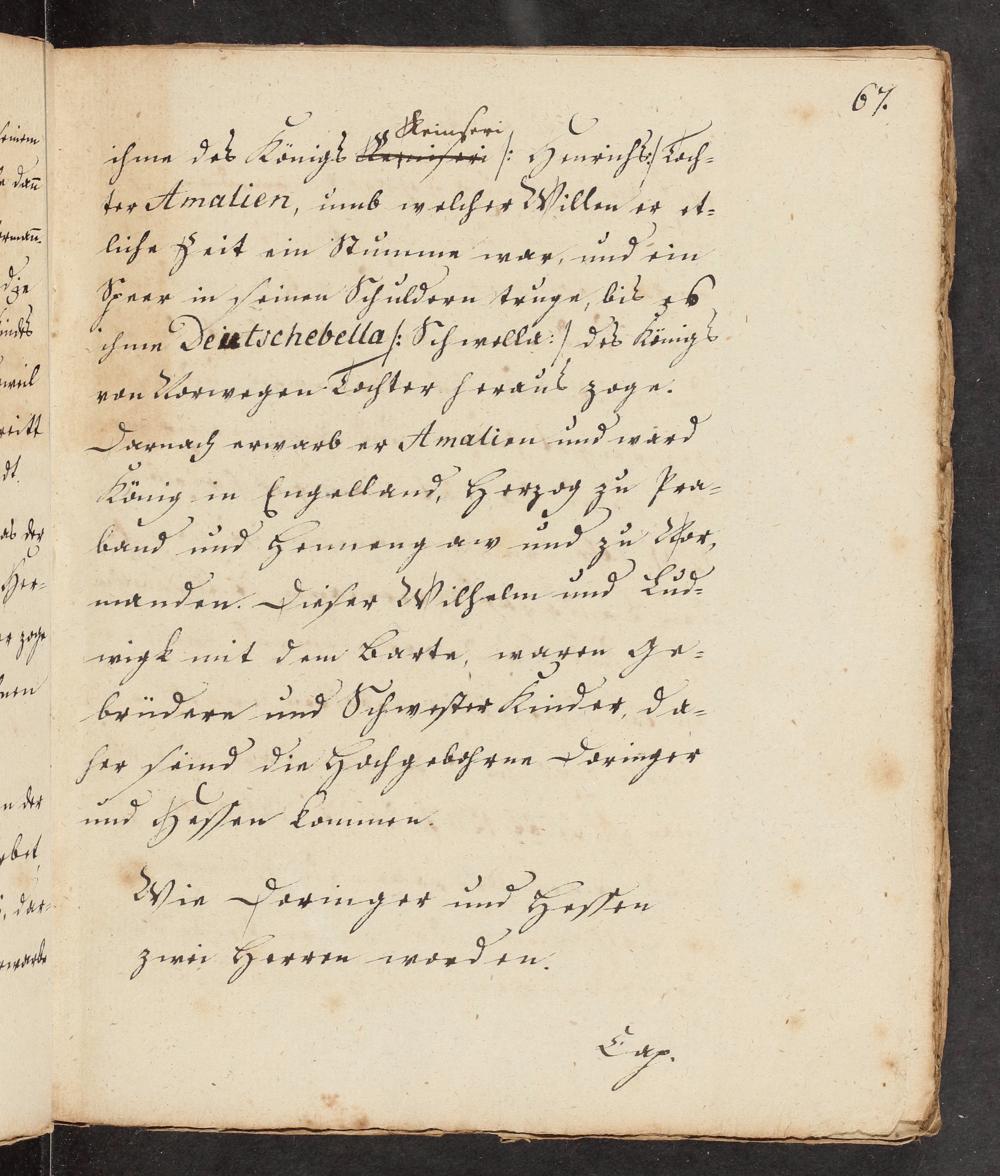 67.
Reinseri
ihme des Königs Reiniseri /: Henrichs :/ Toch-
ter Amalien, umb welcher Willen er et-
liche Zeit ein Stumme war, und ein
Speer in seinen Schuldern truge, bis es
ihme Deutschebella /: Schwella :/ des Königs
von Norwegen Tochter heraus zoge.
Darnach erwarb er Amalien und ward
König in Engelland, Herzog zu Pra-
band und Hennengaw und zu Nor-
manden. Dieser Wilhelm und Lud-
wigk mit dem Barte, waren Ge-
brüdere und Schwester Kinder, da-
her seind die Hochgebohrne Doringer
und Hessen kommen.
Wie Doringer und Hessen
zwei Herren worden.
Cap.